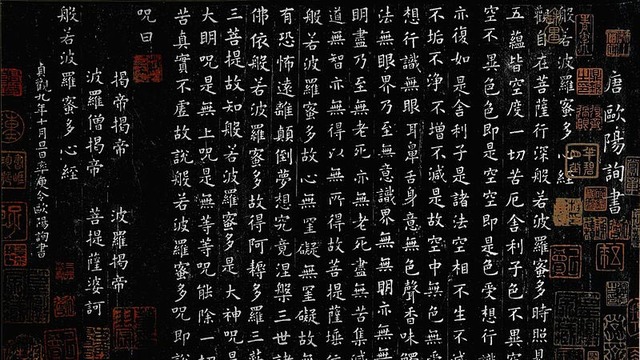 唐歐陽詢書
般若波羅蜜多心經
觀自在菩薩行深般若波羅蜜多時照
五蘊皆空度一切苦厄舍利子色不異
空不異色色即是空空即是色受想行
亦復如是舍利子是諸法空相不生不
不垢不淨不增不減是故空中無色無
想行識無眼耳鼻舌身意無色聲香味觸
法無眼界乃至無意識界無無明亦無
明盡乃至無老死亦無老死盡無苦集
道無智亦無得以無所得故菩提薩埵
般若波羅蜜多故心無罣礙無罣礙故
有恐怖遠離顛倒夢想究竟涅槃三世諸
佛依般若波羅蜜多故得阿耨多羅三
三菩提故知般若波羅蜜多是大神呪是
大明呪是無上呪是無等等呪能除一切
苦真實不虛故說般若波羅蜜多呪即說
呪曰
揭帝揭帝 波羅揭帝
波羅僧揭帝 菩提薩婆訶
般若波羅蜜多心經
貞觀九年十月旦日率更令歐陽詢書